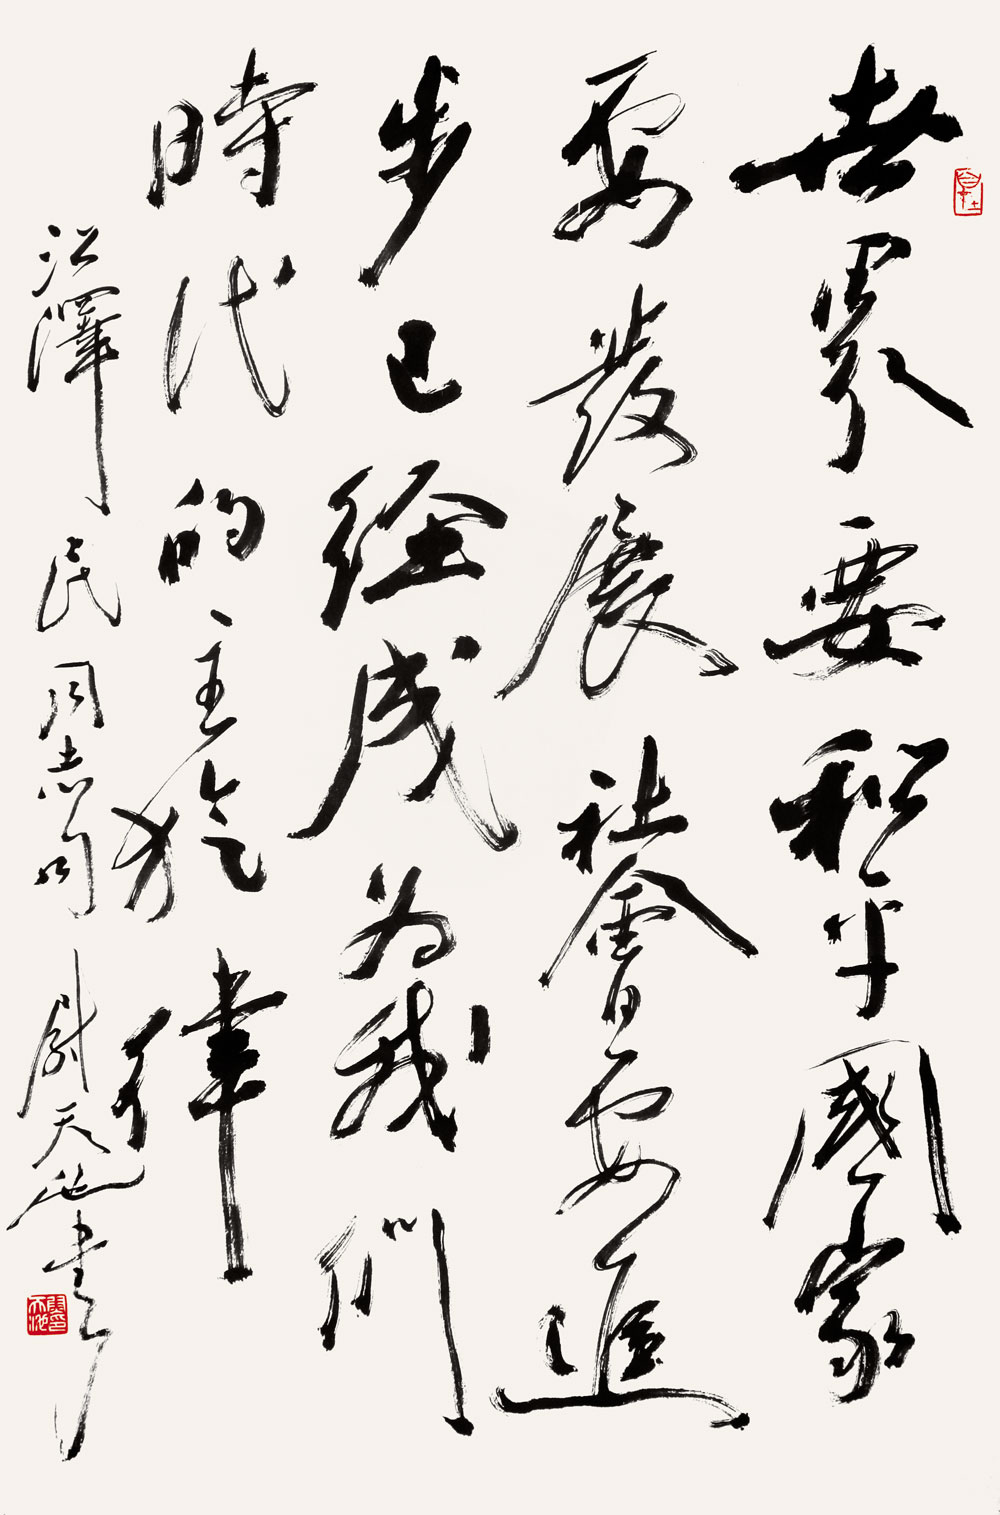 世界要和平國家
要發展社會要進
步已經成為我們
時代的主旋律
江澤民同志句 尉天池書